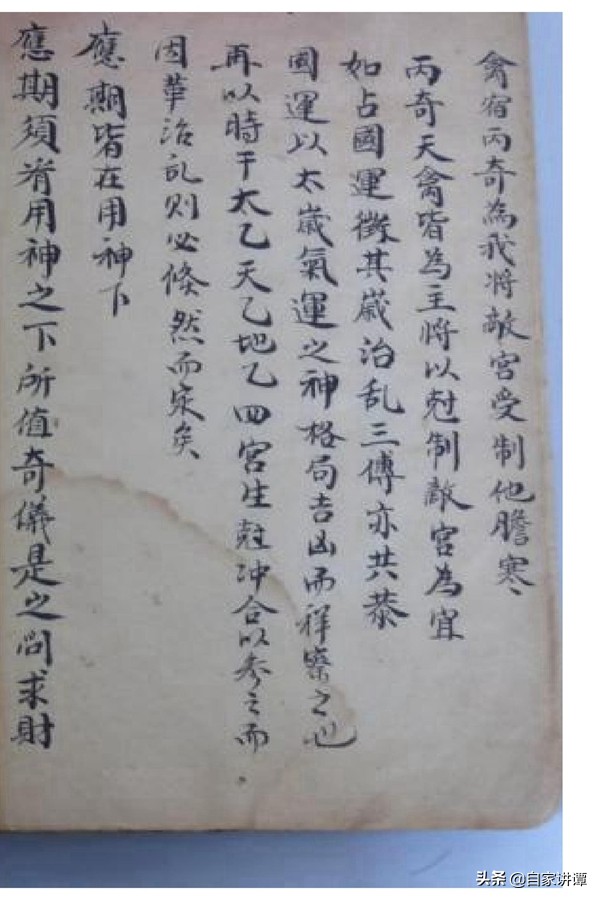 禽宿丙奇為我将敵宮受制他膽寒
丙奇天禽皆為主将以尅制敵宮為宜
如占國運徵其歲治乱三傳亦共恭
國運以太歲氣運之神格局吉凶而祥察之也
再以時干太乙天乙地乙四宮生尅冲合以参之而
因革治乱则必條然而定矣
應期皆在用神下
應期須肴用神之下所值奇儀是之問求財
头条 @自家讲谭